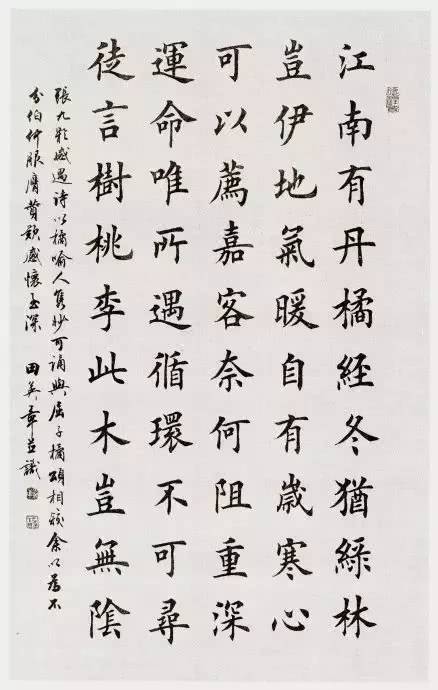 江南有丹橘経冬猶緑林
豈伊地氣暖自有歲寒心
可以薦嘉客奈何阻重深
運命唯所遇循環不可尋
徒言樹桃李此木豈無陰
張九齡感遇詩以橘喻人雋妙可誦與屈子橘頌相較余以爲不
分伯仲服膺贊歎感懷至深 田英章並識